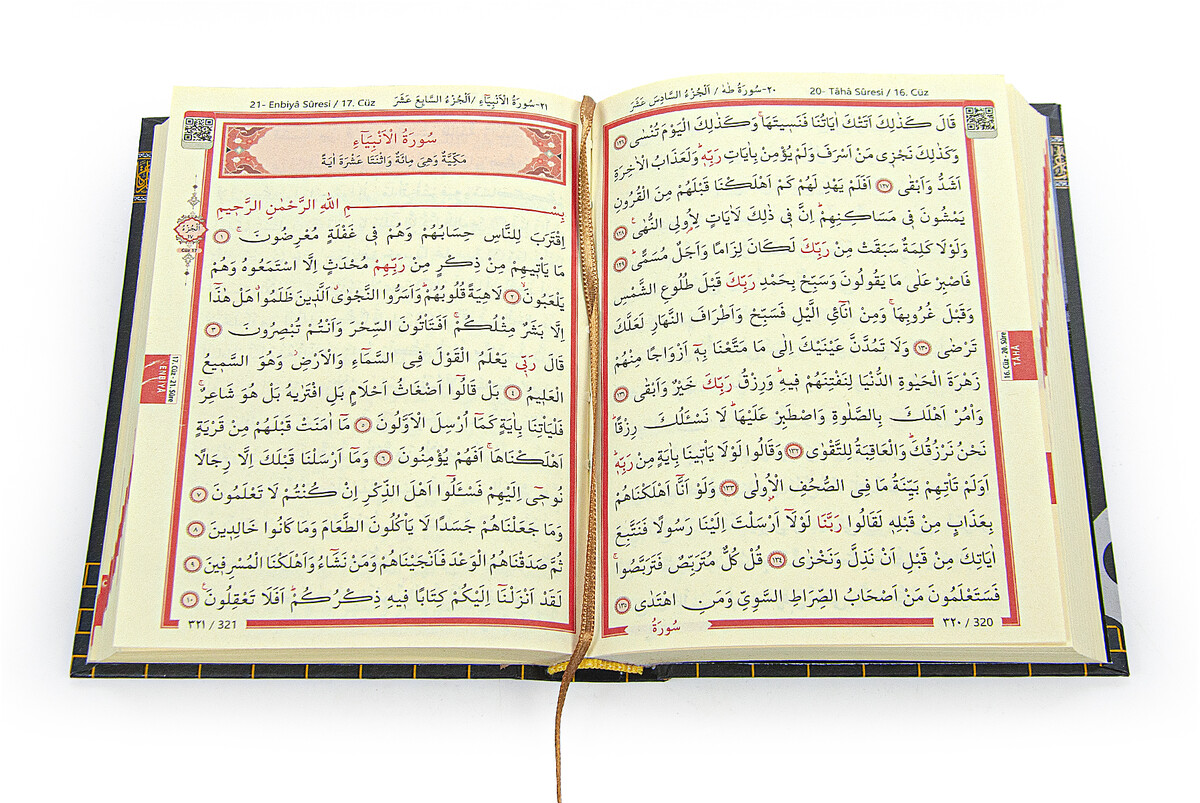 ٢٠-سُورَةُ طٰهٰ / اَلْجُزْءُ السَّادِسَ عَشَرَ
20- Tâhâ Sûresi / 16. Cüz
قَالَ كَذٰلِكَ اَتَتْكَ اٰيَاتُنَا فَنَسٖيتَهَاۚ وَكَذٰلِكَ الْيَوْمَ تُنْسٰى ﴿١٢٦﴾
وَكَذٰلِكَ نَجْزٖى مَنْ اَسْرَفَ وَلَمْ يُؤْمِنْ بِاٰيَاتِ رَبِّهٖؕ وَلَعَذَابُ الْاٰخِرَةِ
اَشَدُّ وَاَبْقٰى ﴿١٢٧﴾ اَفَلَمْ يَهْدِ لَهُمْ كَمْ اَهْلَكْنَا قَبْلَهُمْ مِنَ الْقُرُونِ
يَمْشُونَ فٖى مَسَاكِنِهِمْؕ اِنَّ فٖى ذٰلِكَ لَاٰيَاتٍ لِاُو۬لِى النُّهٰى۟ ﴿١٢٨﴾
وَلَوْلَا كَلِمَةٌ سَبَقَتْ مِنْ رَبِّكَ لَكَانَ لِزَامًا وَاَجَلٌ مُسَمًّىؕ ﴿١٢٩﴾
فَاصْبِرْ عَلٰى مَا يَقُولُونَ وَسَبِّحْ بِحَمْدِ رَبِّكَ قَبْلَ طُلُوعِ الشَّمْسِ
وَقَبْلَ غُرُوبِهَاۚ وَمِنْ اٰنَآئِ الَّيْلِ فَسَبِّحْ وَاَطْرَافَ النَّهَارِ لَعَلَّكَ
تَرْضٰى ﴿١٣٠﴾ وَلَا تَمُدَّنَّ عَيْنَيْكَ اِلٰى مَا مَتَّعْنَا بِهٖٓ اَزْوَاجًا مِنْهُمْ
زَهْرَةَ الْحَيٰوةِ الدُّنْيَا لِنَفْتِنَهُمْ فٖيهِؕ وَرِزْقُ رَبِّكَ خَيْرٌ وَاَبْقٰى ﴿١٣١﴾
وَاْمُرْ اَهْلَكَ بِالصَّلٰوةِ وَاصْطَبِرْ عَلَيْهَاؕ لَا نَسْـَٔلُكَ رِزْقًاؕ
نَحْنُ نَرْزُقُكَؕ وَالْعَاقِبَةُ لِلتَّقْوٰى ﴿١٣٢﴾ وَقَالُوا لَوْلَا يَاْتٖينَا بِاٰيَةٍ مِنْ رَبِّهٖؕ
اَوَلَمْ تَاْتِهِمْ بَيِّنَةُ مَا فِى الصُّحُفِ الْاُو۫لٰى ﴿١٣٣﴾ وَلَوْ اَنَّٓا اَهْلَكْنَاهُمْ
بِعَذَابٍ مِنْ قَبْلِهٖ لَقَالُوا رَبَّنَا لَوْلَٓا اَرْسَلْتَ اِلَيْنَا رَسُولًا فَنَتَّبِعَ
اٰيَاتِكَ مِنْ قَبْلِ اَنْ نَذِلَّ وَنَخْزٰى ﴿١٣٤﴾ قُلْ كُلٌّ مُتَرَبِّصٌ فَتَرَبَّصُواۚ
فَسَتَعْلَمُونَ مَنْ اَصْحَابُ الصِّرَاطِ السَّوِىِّ وَمَنِ اهْتَدٰى ﴿١٣٥﴾
سُورَةُ
٣٢٠ / 320
16. Cüz - 20. Sûre
TÂHÂ
21- Enbiyâ Sûresi / 17. Cüz
٢١-سُورَةُ الْاَنْبِيَٓاءِ / اَلْجُزْءُ السَّابِعَ عَشَرَ
سُورَةُ الْاَنْبِيَٓاءِ
مَكِّيَّةٌ وَهِىَ مِائَةٌ وَاثْنَتَا عَشْرَةَ اٰيَةً
بِسْمِ اللّٰهِ الرَّحْمٰنِ الرَّحٖيمِ
اِقْتَرَبَ لِلنَّاسِ حِسَابُهُمْ وَهُمْ فٖى غَفْلَةٍ مُعْرِضُونَۚ ﴿١﴾
مَا يَاْتٖيهِمْ مِنْ ذِكْرٍ مِنْ رَبِّهِمْ مُحْدَثٍ اِلَّا اسْتَمَعُوهُ وَهُمْ
يَلْعَبُونَۙ ﴿٢﴾ لَاهِيَةً قُلُوبُهُمْؕ وَاَسَرُّوا النَّجْوٰىۗ اَلَّذٖينَ ظَلَمُواۗ هَلْ هٰذَٓا
اِلَّا بَشَرٌ مِثْلُكُمْۚ اَفَتَاْتُونَ السِّحْرَ وَاَنْتُمْ تُبْصِرُونَ ﴿٣﴾
قَالَ رَبّٖى يَعْلَمُ الْقَوْلَ فِى السَّمَٓاءِ وَالْاَرْضِؗ وَهُوَ السَّمٖيعُ
الْعَلٖيمُ ﴿٤﴾ بَلْ قَالُٓوا اَضْغَاثُ اَحْلَامٍ بَلِ افْتَرٰيهُ بَلْ هُوَ شَاعِرٌۚ
فَلْيَاْتِنَا بِاٰيَةٍ كَمَٓا اُرْسِلَ الْاَوَّلُونَ ﴿٥﴾ مَٓا اٰمَنَتْ قَبْلَهُمْ مِنْ قَرْيَةٍ
اَهْلَكْنَاهَاۚ اَفَهُمْ يُؤْمِنُونَ ﴿٦﴾ وَمَٓا اَرْسَلْنَا قَبْلَكَ اِلَّا رِجَالًا
نُوحٖٓى اِلَيْهِمْ فَسْـَٔلُٓوا اَهْلَ الذِّكْرِ اِنْ كُنْتُمْ لَا تَعْلَمُونَ ﴿٧﴾
وَمَا جَعَلْنَاهُمْ جَسَدًا لَا يَاْكُلُونَ الطَّعَامَ وَمَا كَانُوا خَالِدٖينَ ﴿٨﴾
ثُمَّ صَدَقْنَاهُمُ الْوَعْدَ فَاَنْجَيْنَاهُمْ وَمَنْ نَشَٓاءُ وَاَهْلَكْنَا الْمُسْرِفٖينَ ﴿٩﴾
لَقَدْ اَنْزَلْنَٓا اِلَيْكُمْ كِتَابًا فٖيهِ ذِكْرُكُمْؕ اَفَلَا تَعْقِلُونَ۟ ﴿١٠﴾
٣٢١ / 321
اَلْجُزْءُ
١٧
Cüz 17
17. Cüz - 21. Sûre
ENBİYÂ